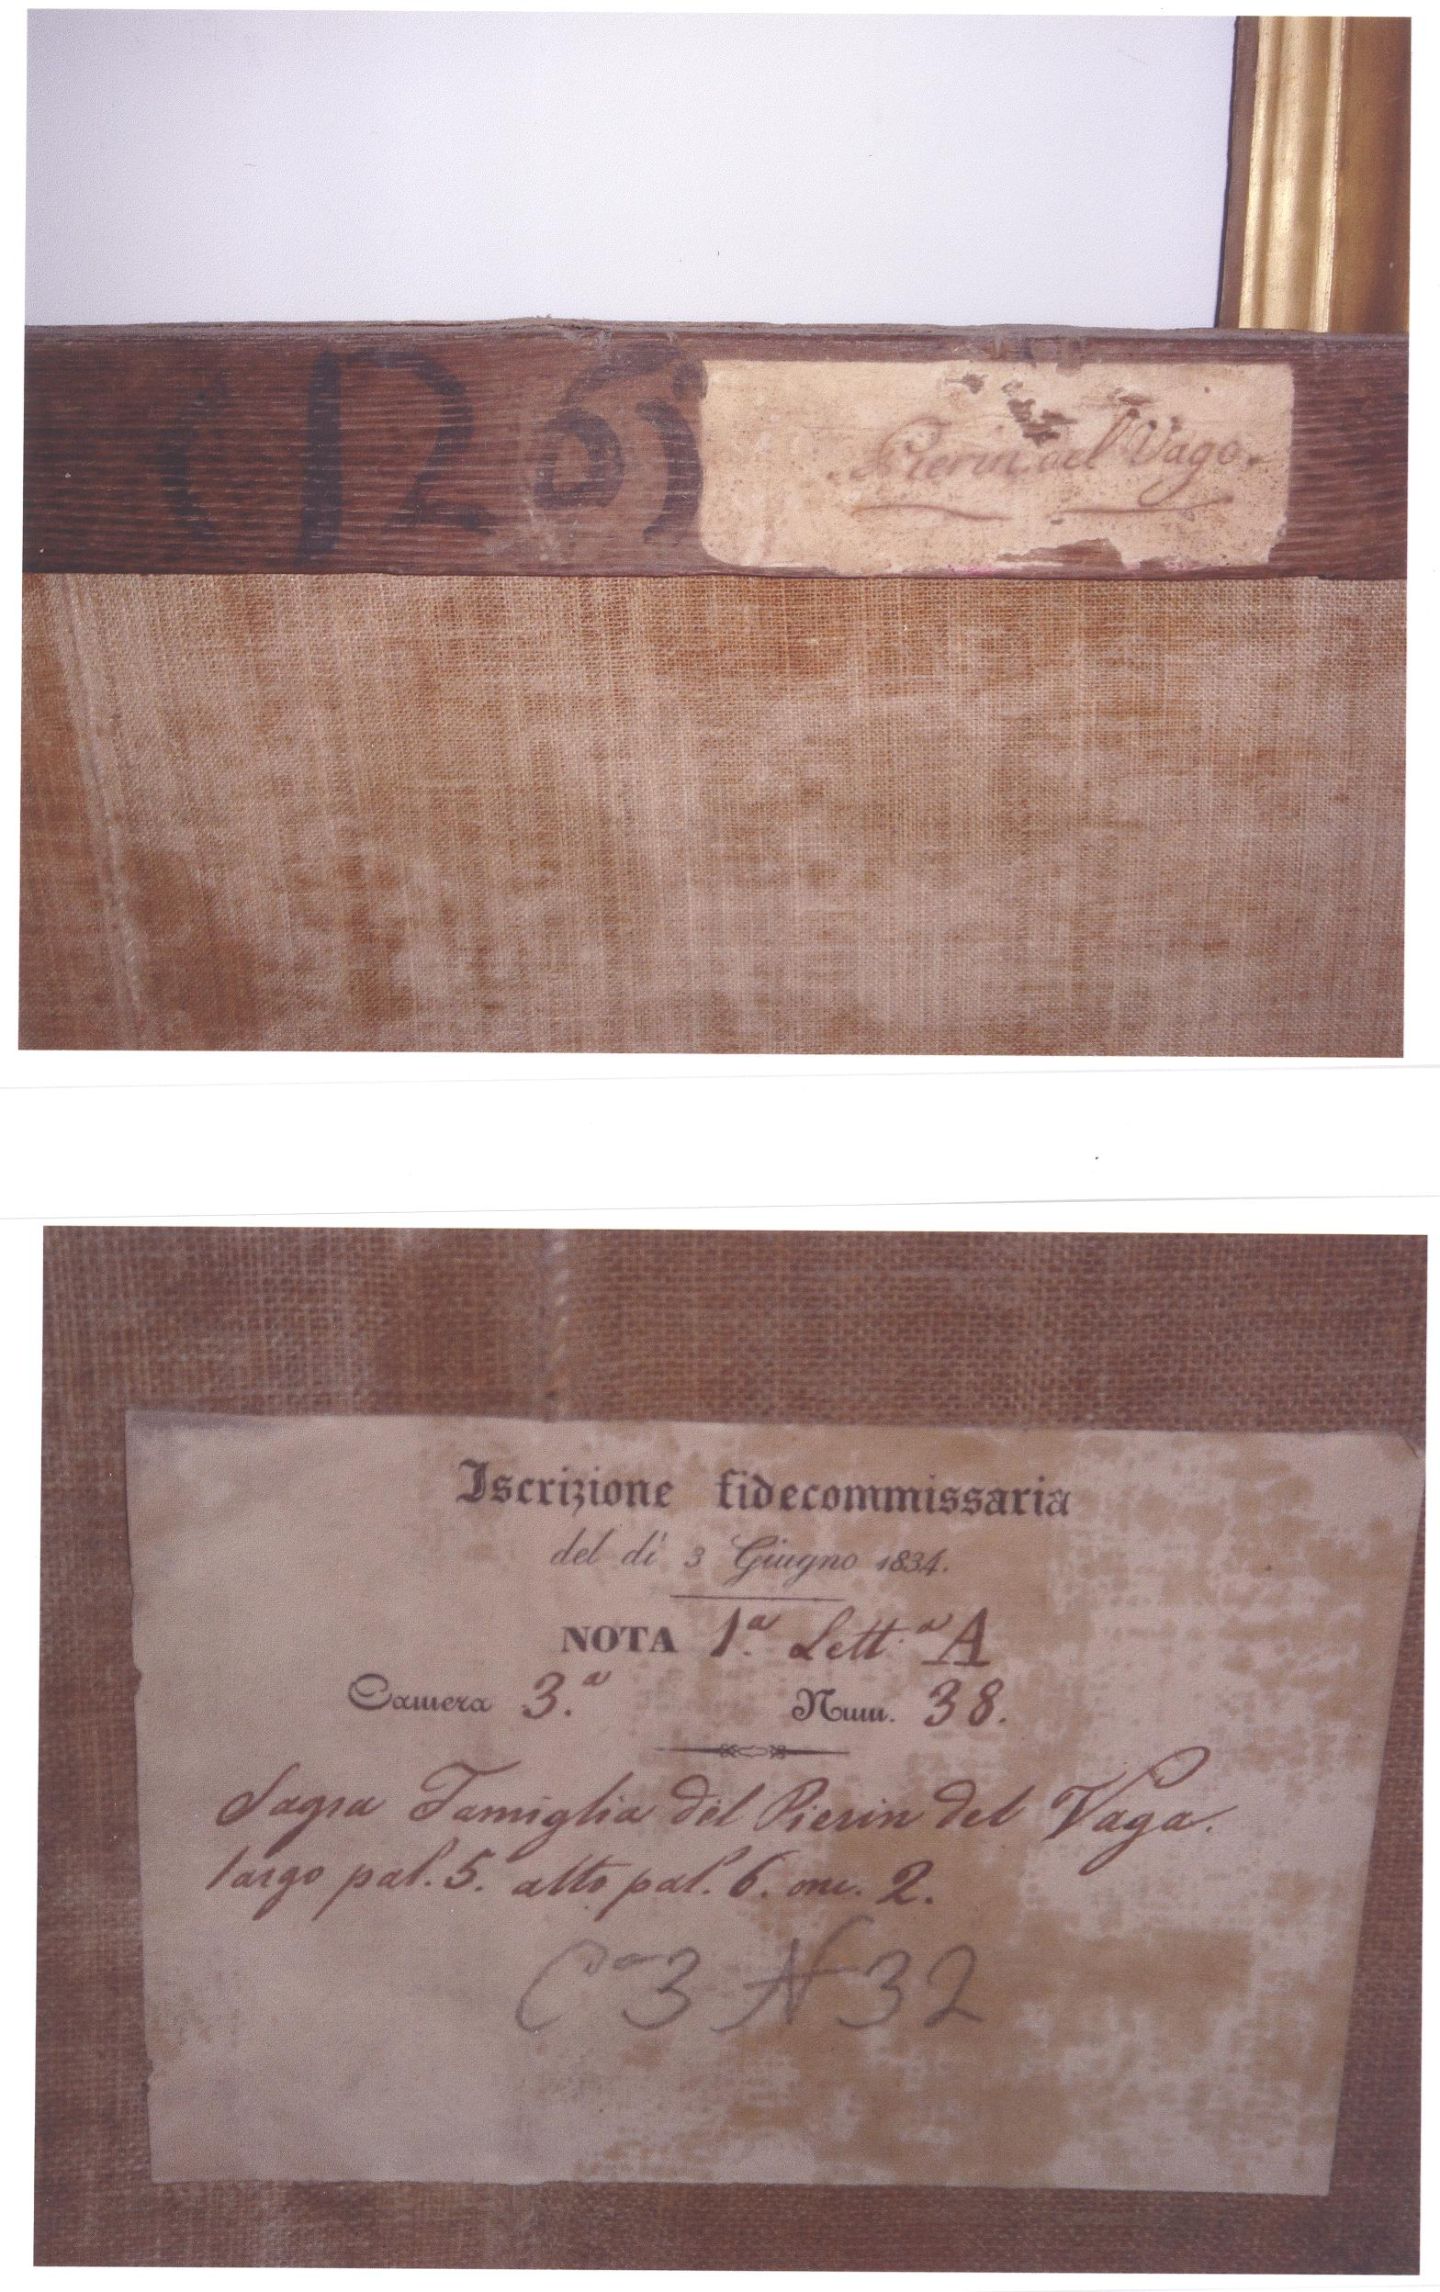 Pierin del Vago.
Iscrizione fidecommissaria
del dì 3 Giugno 1834.
NOTA 1.ª Lett.ª A
Camera 3.ª Num. 38.
Sagra Famiglia del Pierin del Vaga.
largo pal. 5. alto pal. 6. onc. 2.
Cª 3 N 32